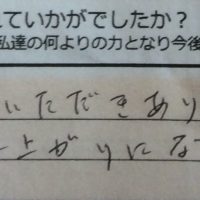 ていかがでしたか？
私達の何よりの力となり今後
いただきあり
上がりにな